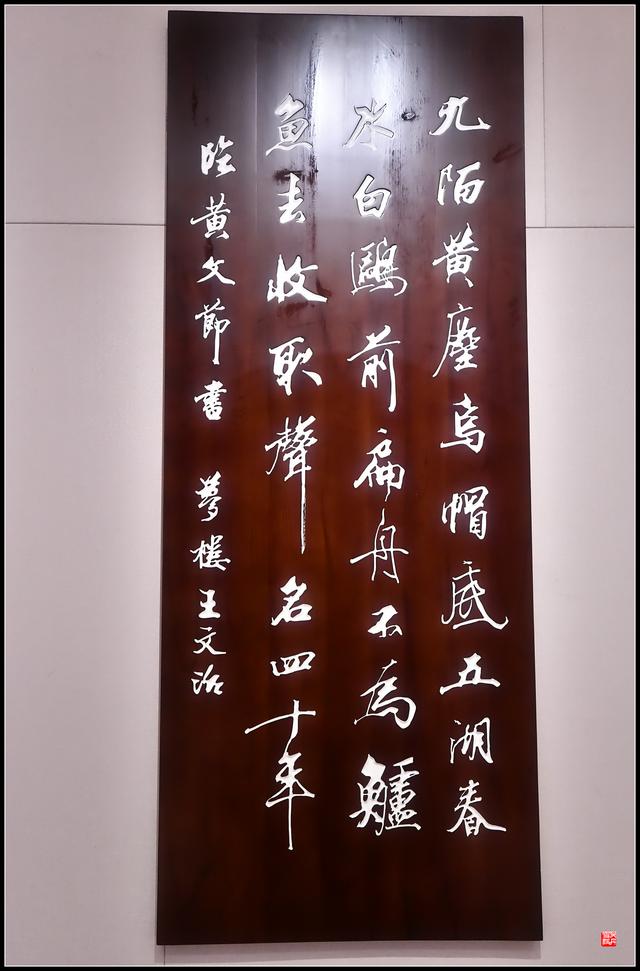 九陌黄塵烏帽底五湖春
水白鷗前扁舟不為鱸
魚去收取聲名四十年
臨黄文節書 夢樓王文治